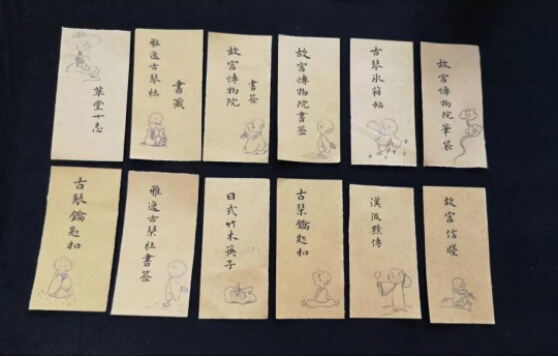 草堂十志
雅逸古琴社
書籤
故宮博物院
書签
故宮博物院書签
古琴氷箱帖
故宮博物院筆袋
古琴鑰匙扣
雅逸古琴社書签
日式竹木筷子
古琴鑰匙扣
漢汲黯傳
故宮信